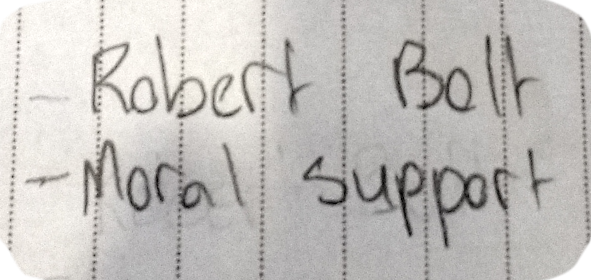 - Robert Bolt
- Moral support